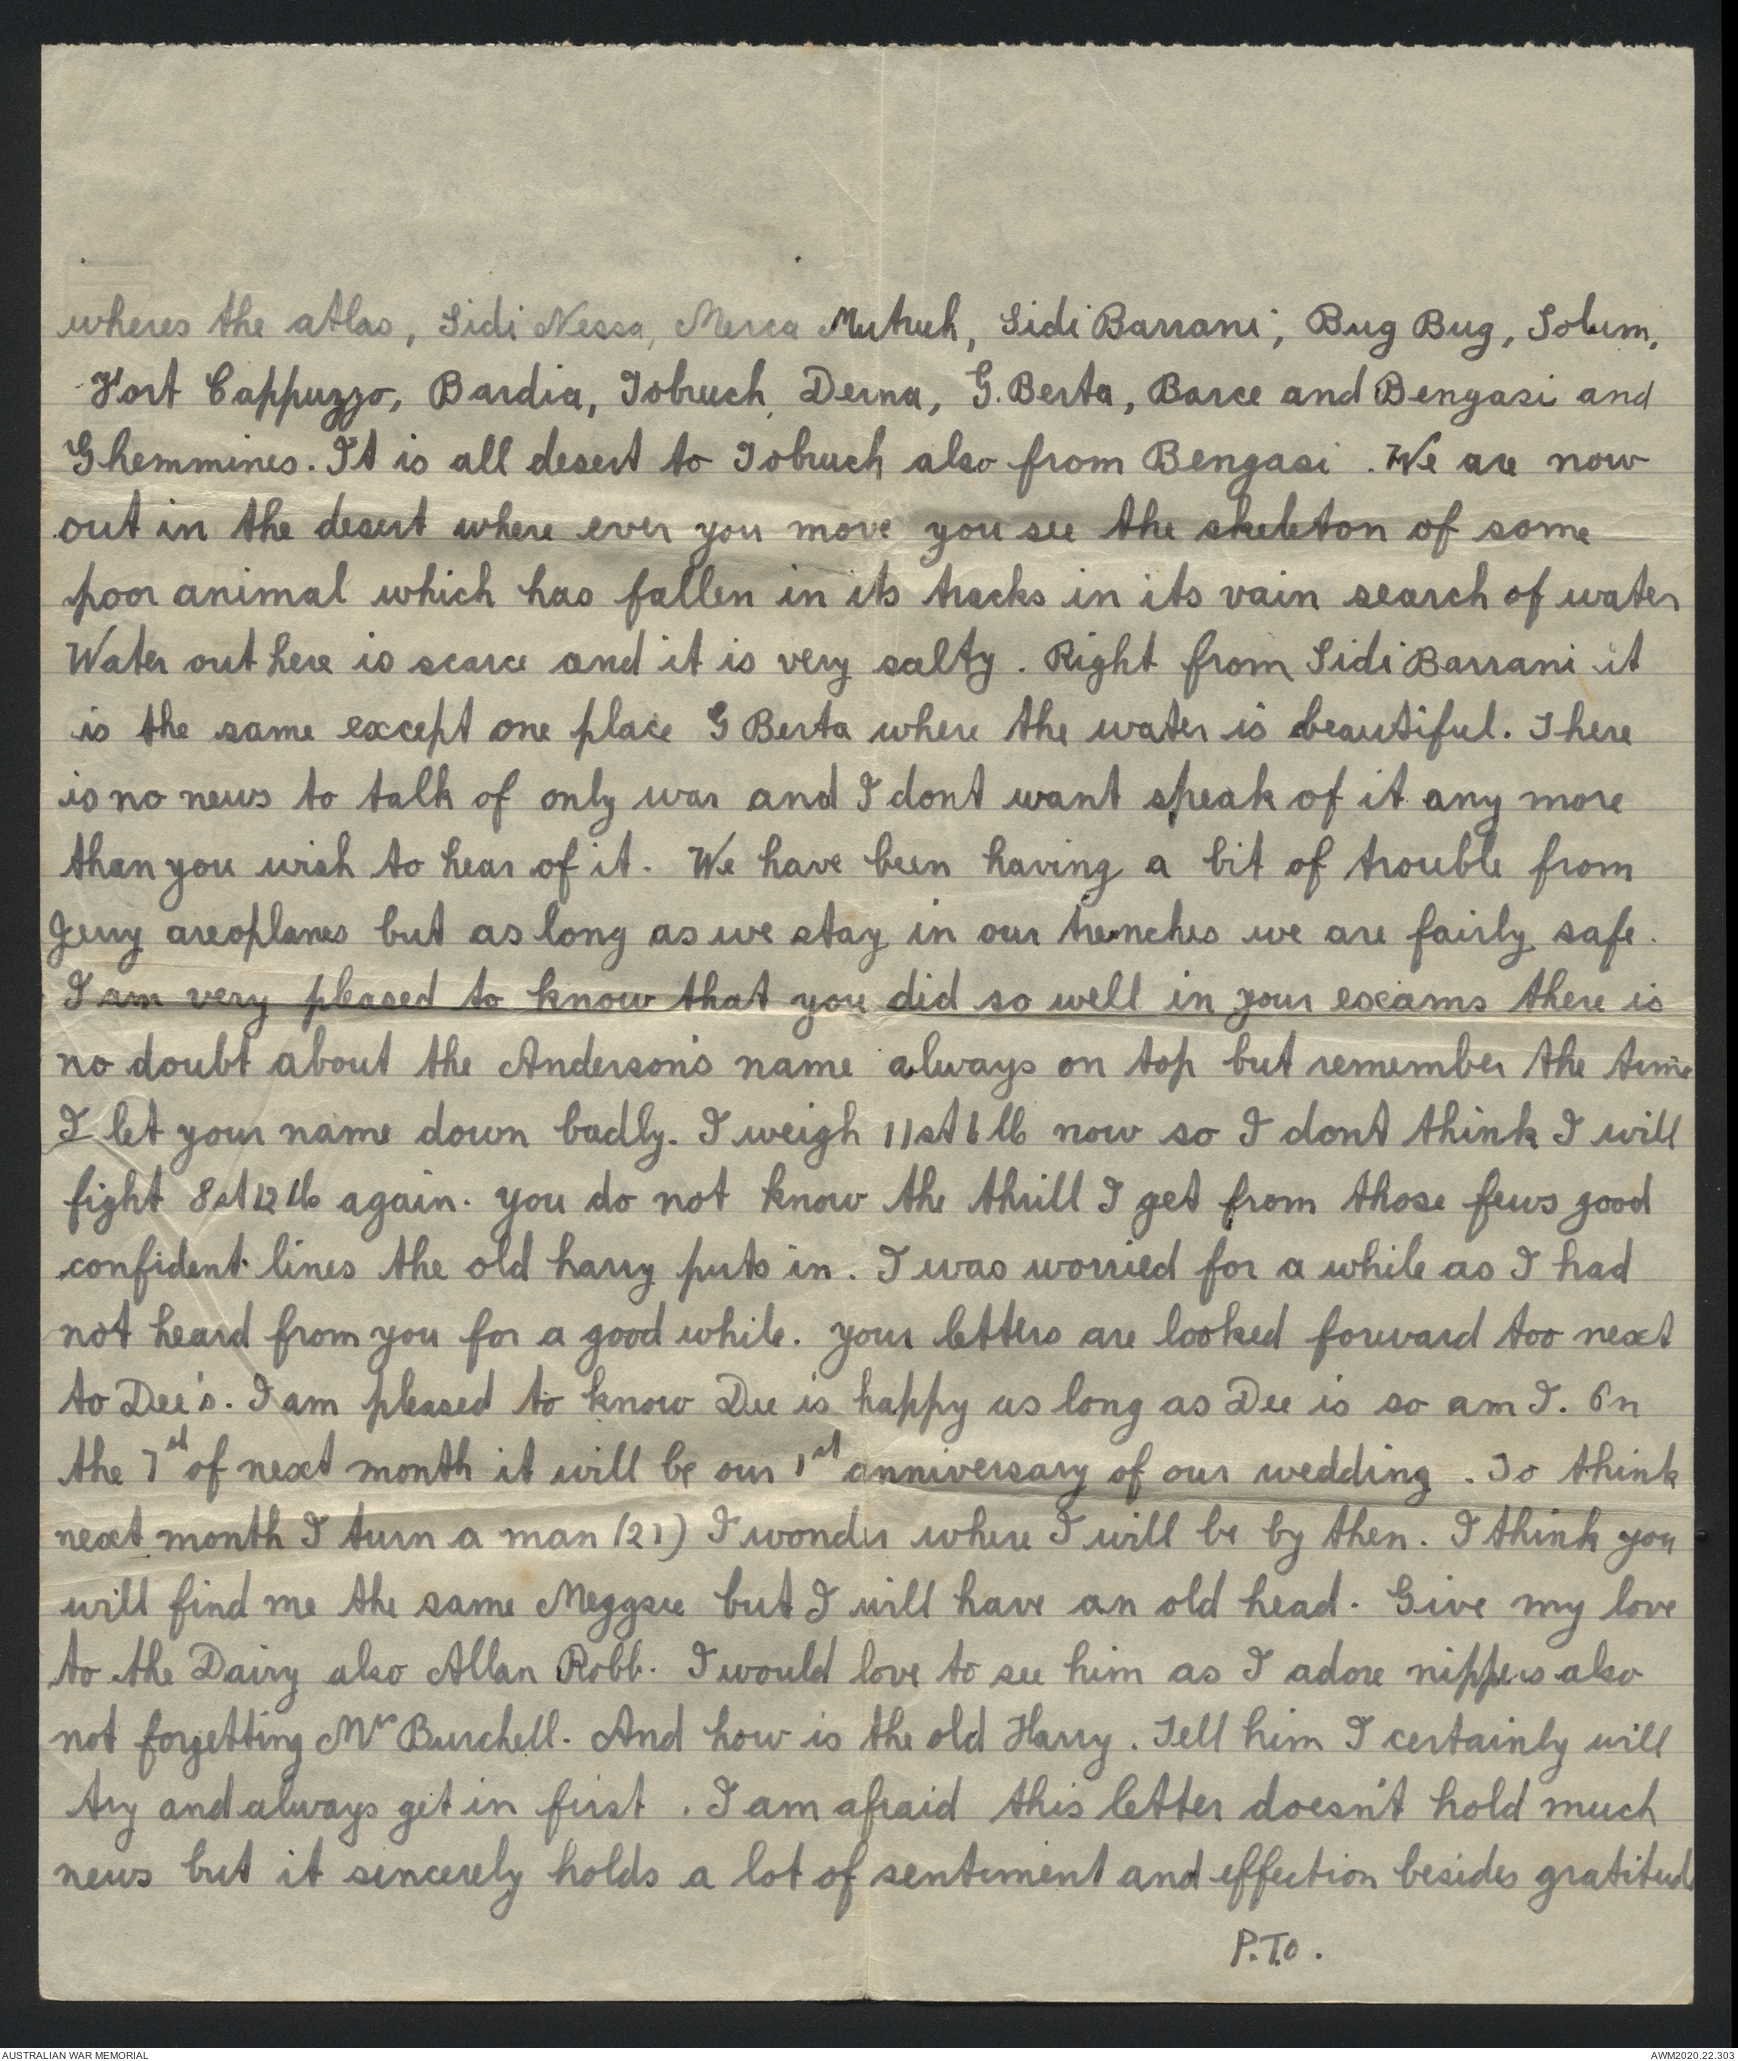 wheres the atlas, Sidi Nessa, Merca Mutruh, Sidi Barrani, Bug Bug, Solum,
Fort Cappuzzo, Bardia, Tobruch, Derna, G. Berta, Barce and Bengasi and
Ghemmines. It is all desert to Tobruch also from Bengasi. We are now
out in the desert where ever you move you see the skeleton of some
poor animal which has fallen in its tracks in its vain search of water
Water out here is scarce and it is very salty. Right from Sidi Barrani it
is the same except one place G Berta where the water is beautiful. There
is no news to talk of only war and I dont want speak of it any more
than you wish to hear of it. We have been having a bit of trouble from
Jerry areoplanes but as long as we stay in our trenches we are fairly safe.
I am very pleased to know that you did so well in your exams there is
no doubt about the Anderson's name always on top but remember the time
I let your name down badly. I weigh 11st 6 lb now so I dont think I will
fight 8st 12 lb again. You do not know the thrill I get from those fews good
confident lines the old harry puts in. I was worried for a while as I had
not heard from you for a good while. Your letters are looked forward too next
to Dee's. I am pleased to know Dee is happy as long as Dee is so am I. On
the 7st of next month it will be our 1st anniversary of our wedding. To think
next month I turn a man (21) I wonder where I will be by then. I think you
will find me the same Meggsee but I will have an old head. Give my love
to the Dairy also Allan Robb. I would love to see him as I adore nippers also
not forgetting Mr Burchell. And how is the old Harry. Tell him I certainly will
try and always get in first. I am afraid this letter doesn't hold much
news but it sincerely holds a lot of sentiment and effection besides gratitude
P.T.O.
AUSTRALIAN WAR MEMORIAL
AWM2020.22.303